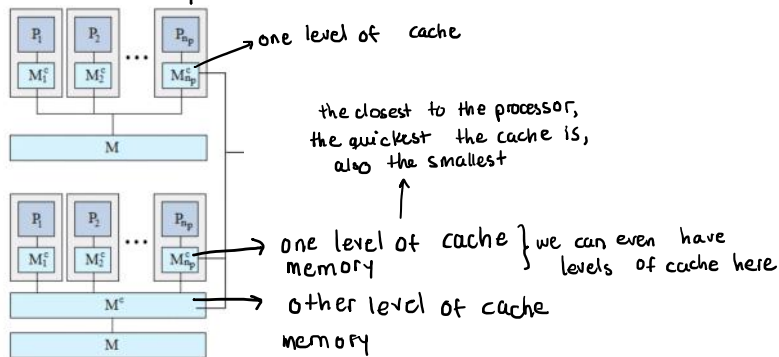 P₁ P₂ ... Pₙₚ
M₁ᶜ M₂ᶜ Mₙₚᶜ
one level of cache
M
the closest to the processor,
the quickest the cache is,
also the smallest
P₁ P₂ ... Pₙₚ
M₁ᶜ M₂ᶜ Mₙₚᶜ
one level of cache
memory
we can even have
levels of cache here
Mᶜ
other level of cache
memory
M